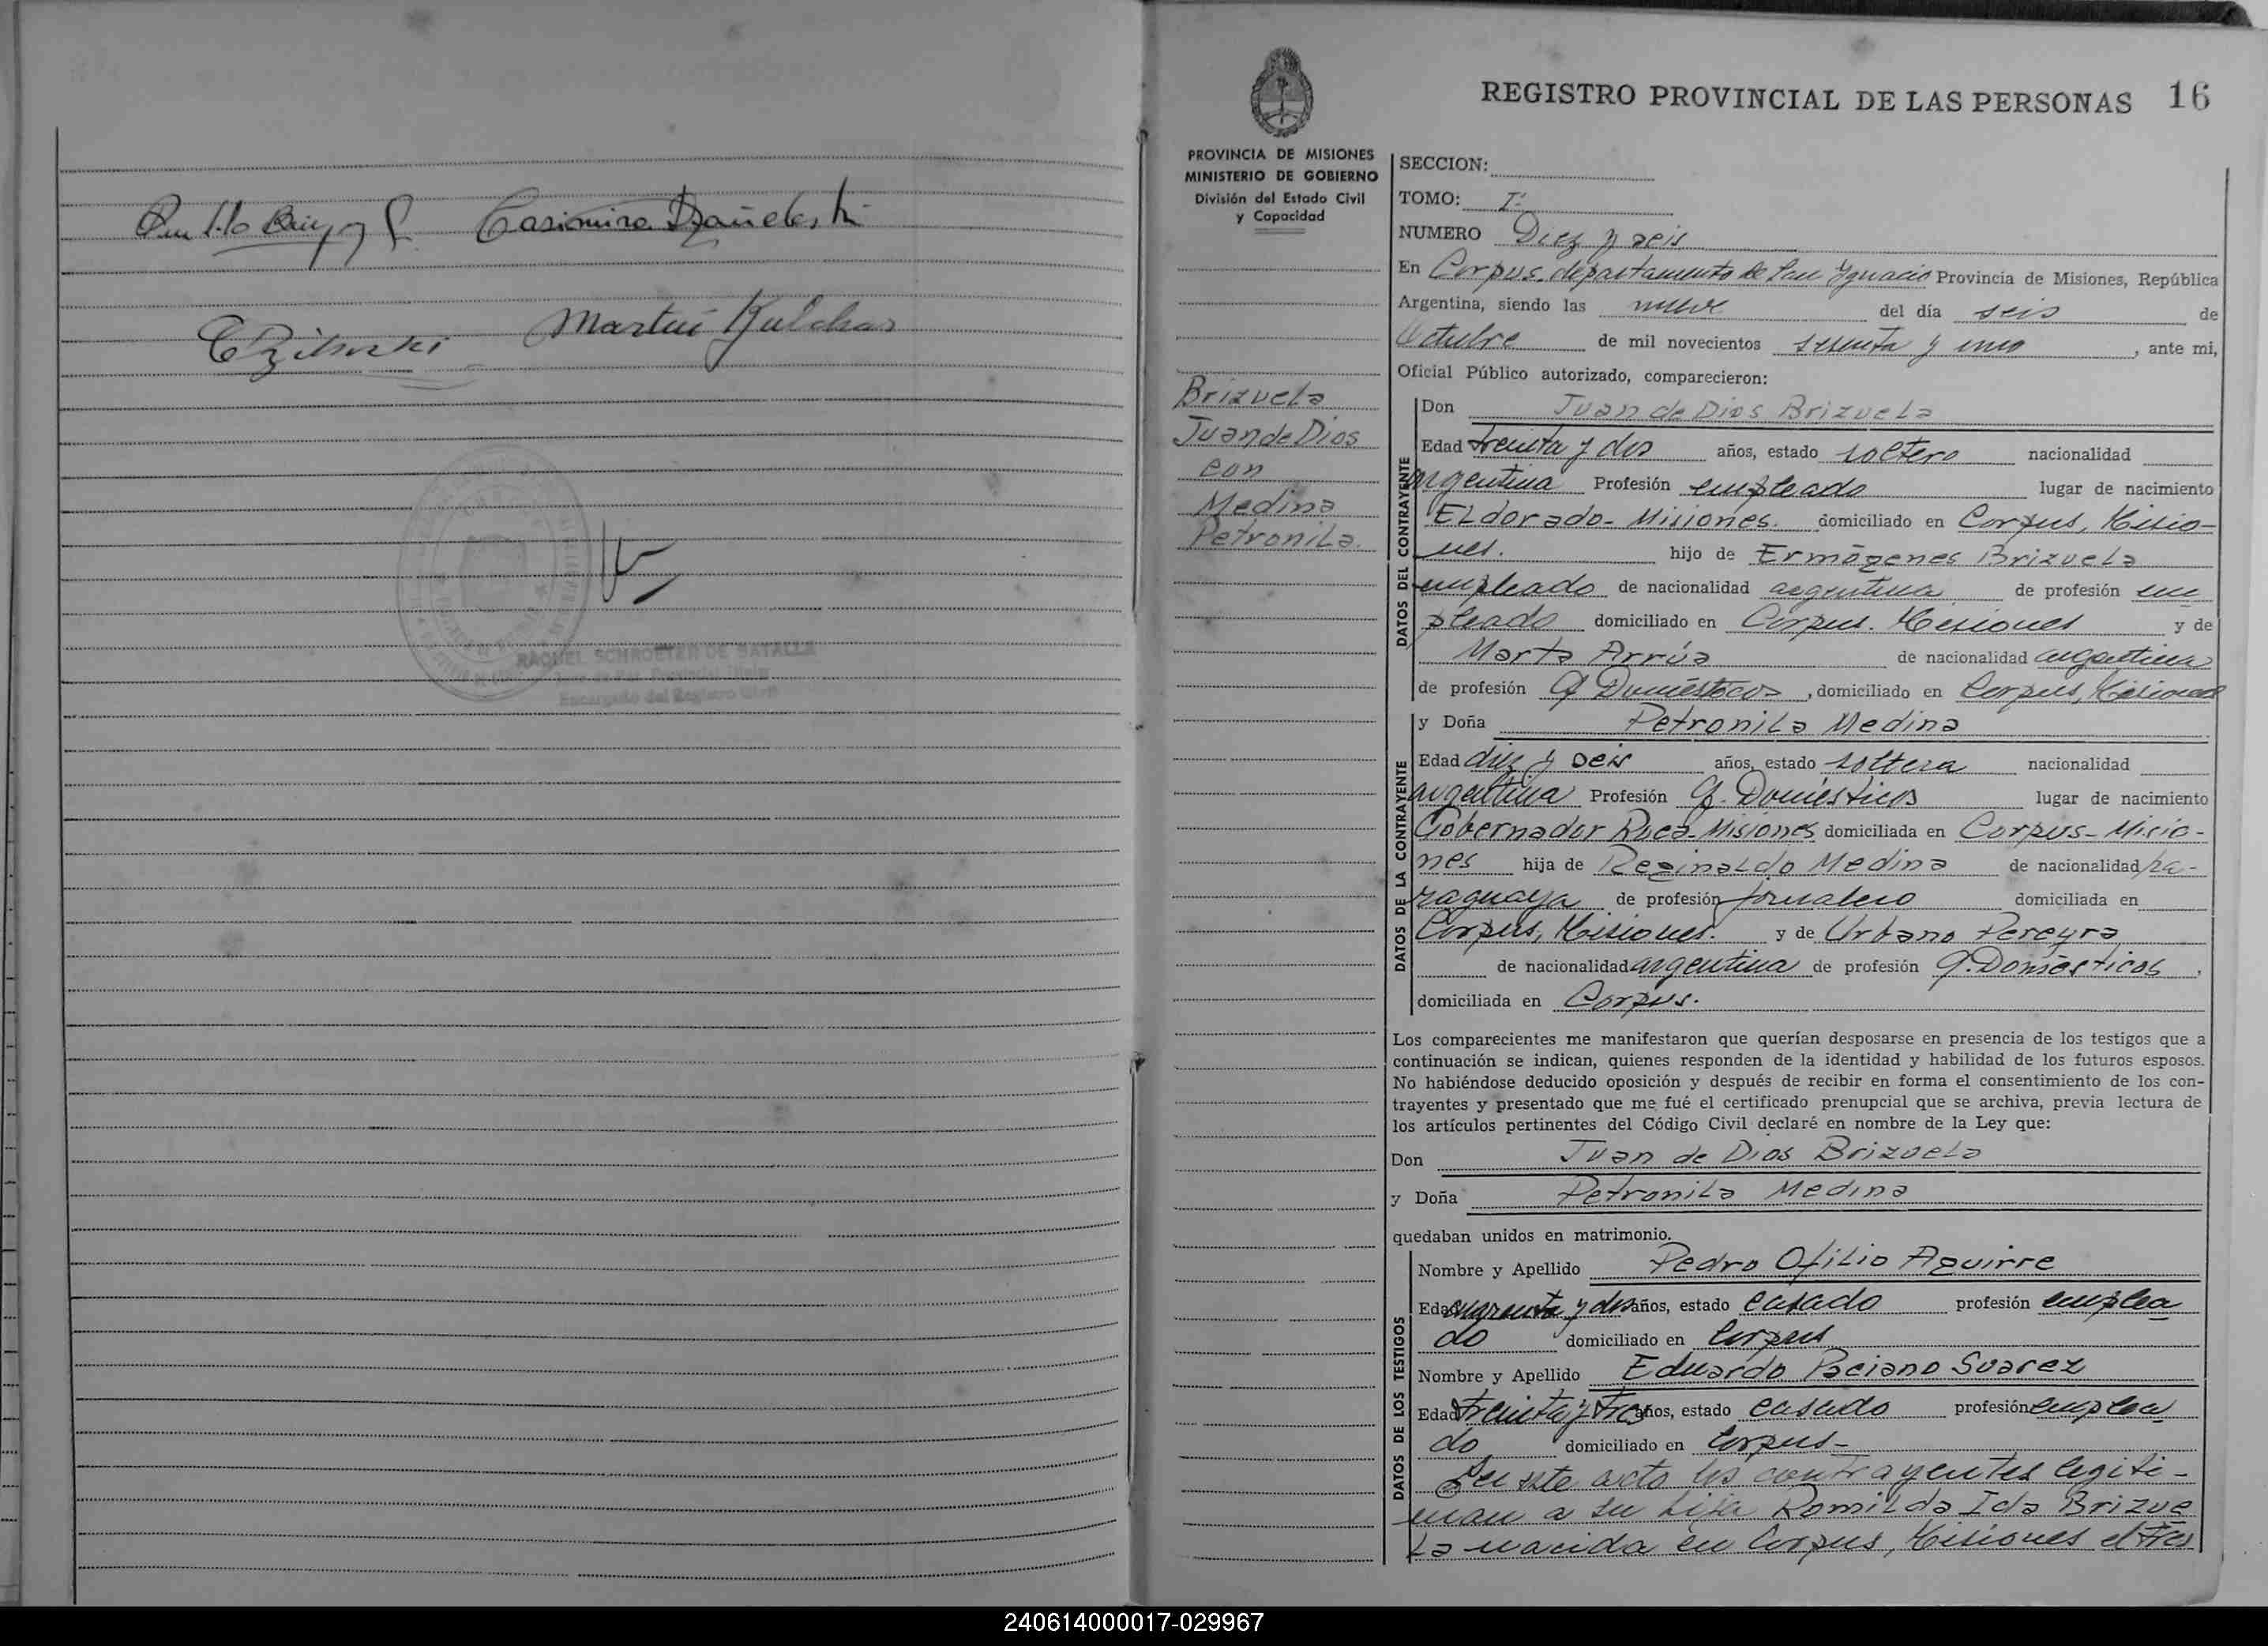 Casimira
Martin Kulchar
RAQUEL SCHROETER DE BATALLA
Encargado del Registro Civil
REGISTRO PROVINCIAL DE LAS PERSONAS 16
PROVINCIA DE MISIONES
MINISTERIO DE GOBIERNO
División del Estado Civil
y Capacidad
Brizuela
Juan de Dios
con
Medina
Petronila.
SECCION:
TOMO: I:
NUMERO Diez y seis
En Corpus, departamento de San Ygnacio Provincia de Misiones, República
Argentina, siendo las nueve del día seis de
Octubre de mil novecientos sesenta y uno, ante mi,
Oficial Público autorizado, comparecieron:
DATOS DEL CONTRAYENTE
Don Juan de Dios Brizuela
Edad treinta y dos años, estado soltero nacionalidad
argentina Profesión empleado lugar de nacimiento
ELdorado - Misiones. domiciliado en Corpus, Misio-
nes. hijo de Ermógenes Brizuela
empleado de nacionalidad argentina de profesión em
pleado domiciliado en Corpus. Misiones y de
Marta Arrúa de nacionalidad argentina
de profesión Q Domésticos, domiciliado en Corpus, Misiones
DATOS DE LA CONTRAYENTE
y Doña Petronila Medina
Edad diez y seis años, estado soltera nacionalidad
argentina Profesión Q. Domésticos lugar de nacimiento
Gobernador Roca - Misiones domiciliada en Corpus - Misio-
nes hija de Reginaldo Medina de nacionalidad pa-
raguaya de profesión jornalero domiciliada en
Corpus, Misiones. y de Urbana Pereyra
de nacionalidad argentina de profesión Q. Domésticos,
domiciliada en Corpus.
Los comparecientes me manifestaron que querían desposarse en presencia de los testigos que a
continuación se indican, quienes responden de la identidad y habilidad de los futuros esposos.
No habiéndose deducido oposición y después de recibir en forma el consentimiento de los con-
trayentes y presentado que me fué el certificado prenupcial que se archiva, previa lectura de
los artículos pertinentes del Código Civil declaré en nombre de la Ley que:
Don Juan de Dios Brizuela
y Doña Petronila Medina
quedaban unidos en matrimonio.
DATOS DE LOS TESTIGOS
Nombre y Apellido Pedro Ofilio Aguirre
Edad cuarenta y dos años, estado casado profesión emplea
do domiciliado en Corpus
Nombre y Apellido Eduardo Paciano Suarez
Edad treinta y tres años, estado casado profesión emplea
do domiciliado en Corpus-
En este acto los contrayentes legiti-
man a su hija Romilda Ida Brizue
la nacida en Corpus, Misiones el tres
240614000017-029967